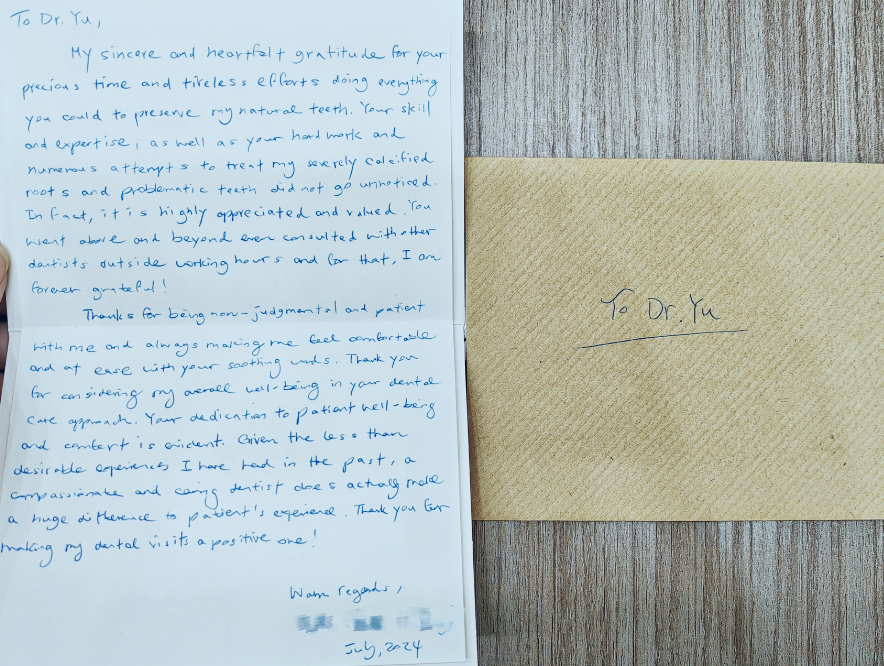 To Dr. Yu,
My sincere and heartfelt gratitude for your
precious time and tireless efforts doing everything
you could to preserve my natural teeth. Your skill
and expertise, as well as your hard work and
numerous attempts to treat my severely calcified
roots and problematic teeth did not go unnoticed.
In fact, it is highly appreciated and valued. You
went above and beyond even consulted with other
dentists outside working hours and for that, I am
forever grateful!
Thanks for being non-judgmental and patient
with me and always making me feel comfortable
and at ease with your soothing words. Thank you
for considering my overall well-being in your dental
care approach. Your dedication to patient well-being
and comfort is evident. Given the less than
desirable experiences I have had in the past, a
compassionate and caring dentist does actually make
a huge difference to patient's experience. Thank you for
making my dental visits a positive one!
Warm regards,
July, 2024
To Dr. Yu